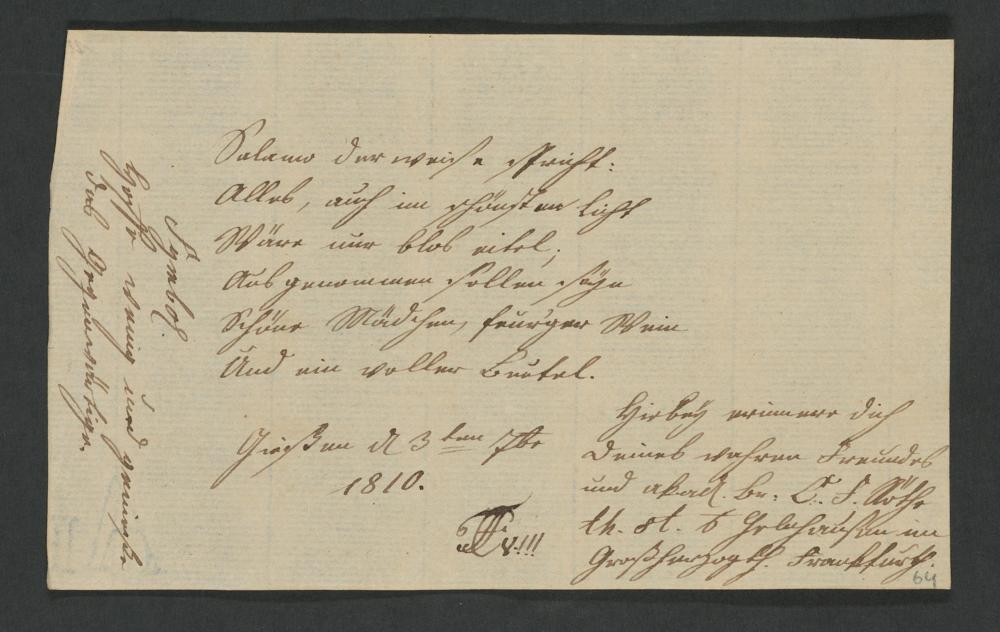 Salamo der weise spricht:
Alles, auch im schönsten Licht
Wäre nur blos eitel;
Ausgenommen sollen seyn
Schöne Mädchen, feur'ger Wein
Und ein voller Beutel.
Gießen d 3ten 7br
1810.
Hiebey erinnere dich
Deines wahren Freundes
und akad. Br: C. F.
th. st. Gelnhausen im
Großherzogth. Frankfurth.
Symbol.
Hoffe wenig und genieße
das Gegenwärtige.
64